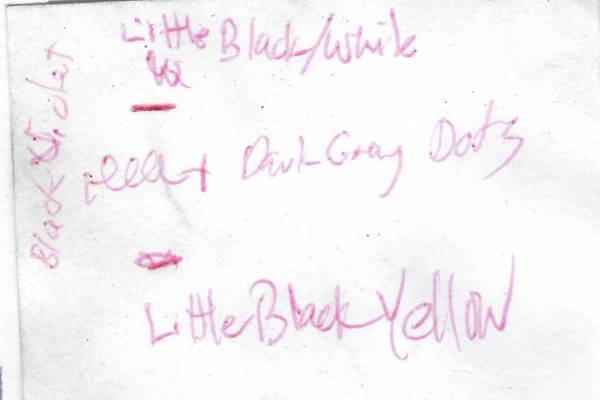 Little Black/White
Dark Gray Dots
Little Black Yellow
Black Violet